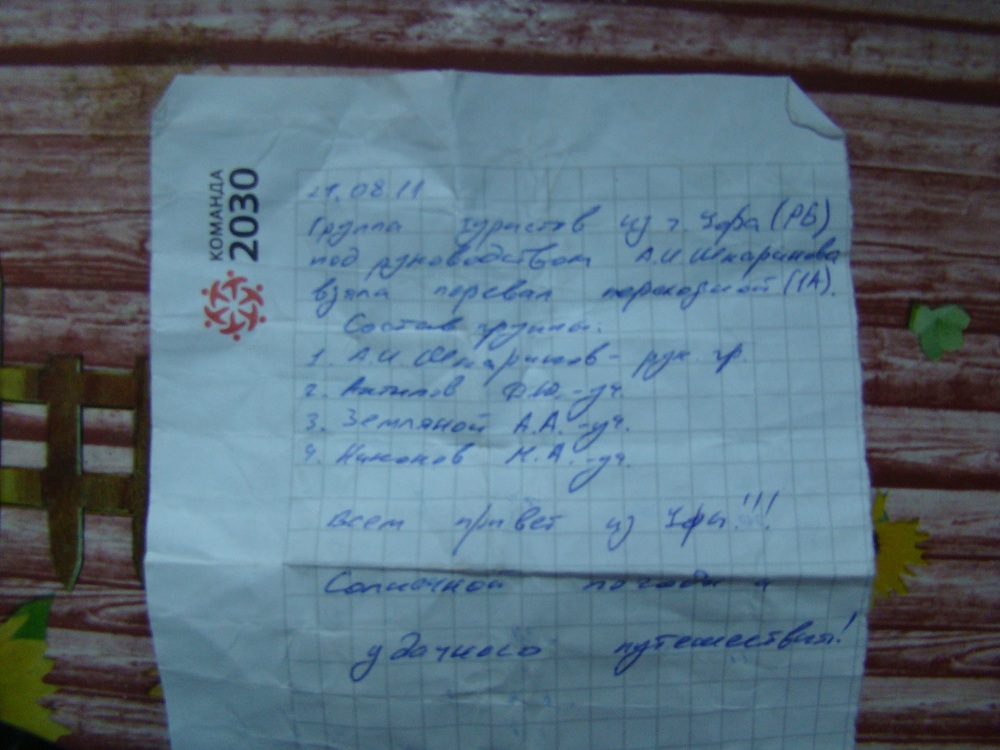 КОМАНДА
2030
21.08.11
Группа туристов из г. Уфа (РБ)
под руководством А.И. Шкаринова
взяла перевал (1А).
Состав группы:
1. А.И. Шкаринов - рук. гр.
2. Антипов Ф.Ю. - уч.
3. Земляной А.А. - уч.
4. Никонов М.А. - уч.
Всем привет из Уфы!!!
Солнечной погоды и
удачного путешествия!